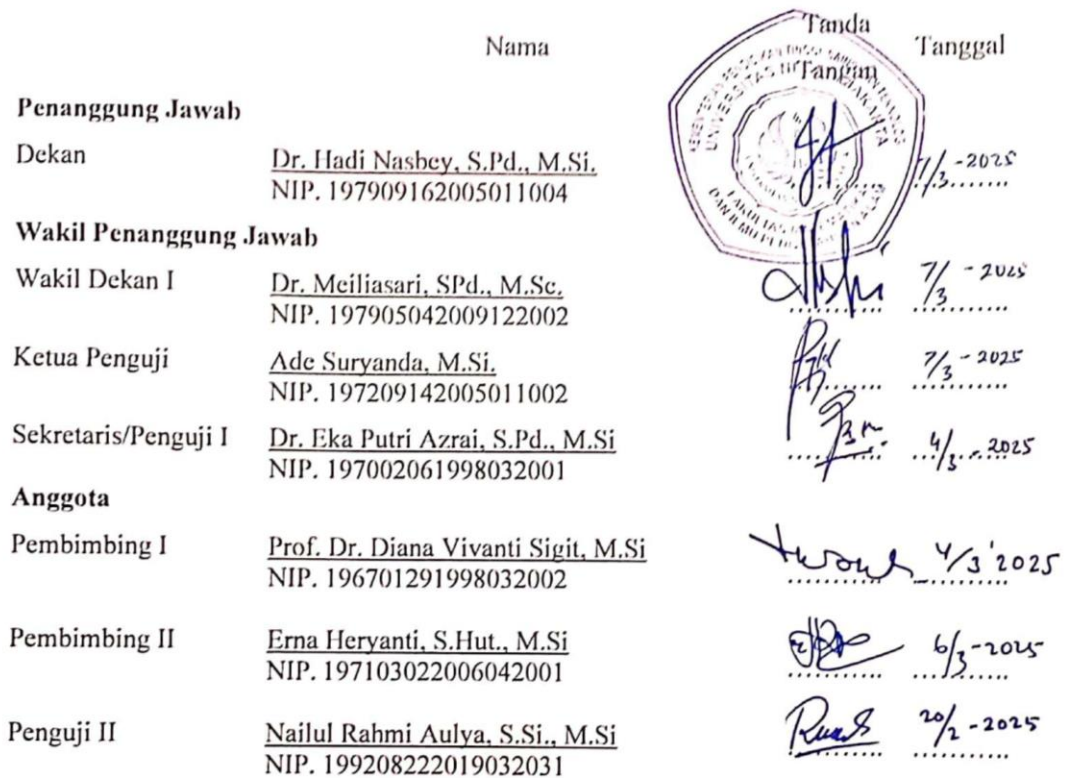 Nama Tanda Tangan Tanggal
Penanggung Jawab
Dekan Dr. Hadi Nasbey, S.Pd., M.Si. 7/3 - 2025
NIP. 197909162005011004
Wakil Penanggung Jawab
Wakil Dekan I Dr. Meiliasari, SPd., M.Sc. 7/3 - 2025
NIP. 197905042009122002
Ketua Penguji Ade Suryanda, M.Si. 7/3 - 2025
NIP. 197209142005011002
Sekretaris/Penguji I Dr. Eka Putri Azrai, S.Pd., M.Si 4/3 - 2025
NIP. 197002061998032001
Anggota
Pembimbing I Prof. Dr. Diana Vivanti Sigit, M.Si 4/3 2025
NIP. 196701291998032002
Pembimbing II Erna Heryanti, S.Hut., M.Si 6/3 - 2025
NIP. 197103022006042001
Penguji II Nailul Rahmi Aulya, S.Si., M.Si 20/2 - 2025
NIP. 199208222019032031